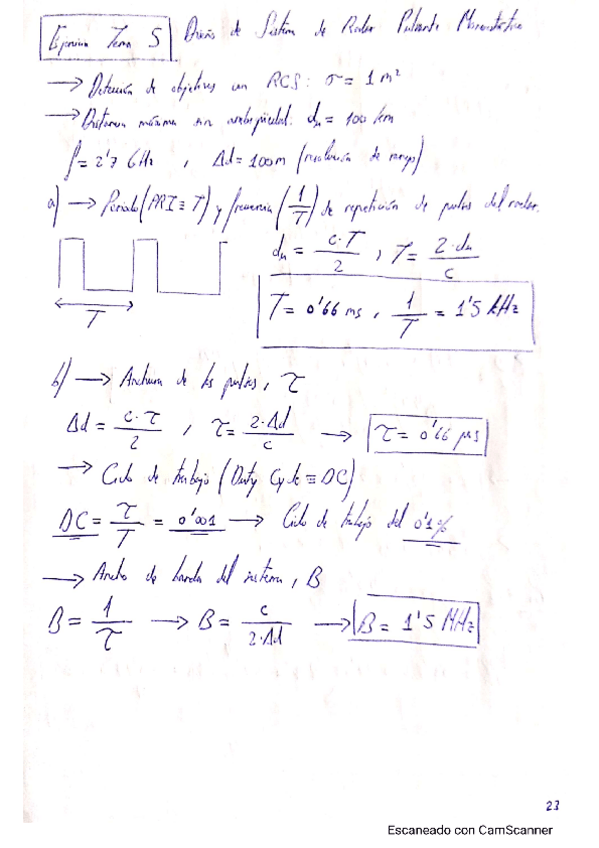 Ejercicio Tema 5 Diseño de Sistema de Radar Pulsante Monoestático
→ Detección de objetivos con RCS: σ = 1 m²
→ Distancia máxima sin ambigüedad: dₘ = 100 km
f = 2'7 GHz , Δd = 100m (resolución de rango)
a) → Periodo (PRI ≡ T) y frecuencia (1/T) de repetición de pulsos del radar.
dₘ = c·T/2 , T = 2·dₘ/c
T
T = 0'66 ms , 1/T = 1'5 kHz
b) → Anchura de los pulsos, τ
Δd = c·τ/2 , τ = 2·Δd/c → τ = 0'66 μs
→ Ciclo de trabajo (Duty Cycle ≡ DC)
DC = τ/T = 0'001 → Ciclo de trabajo del 0'1%
→ Ancho de banda del sistema, B
B = 1/τ → B = c/2·Δd → B = 1'5 MHz
23
Escaneado con CamScanner